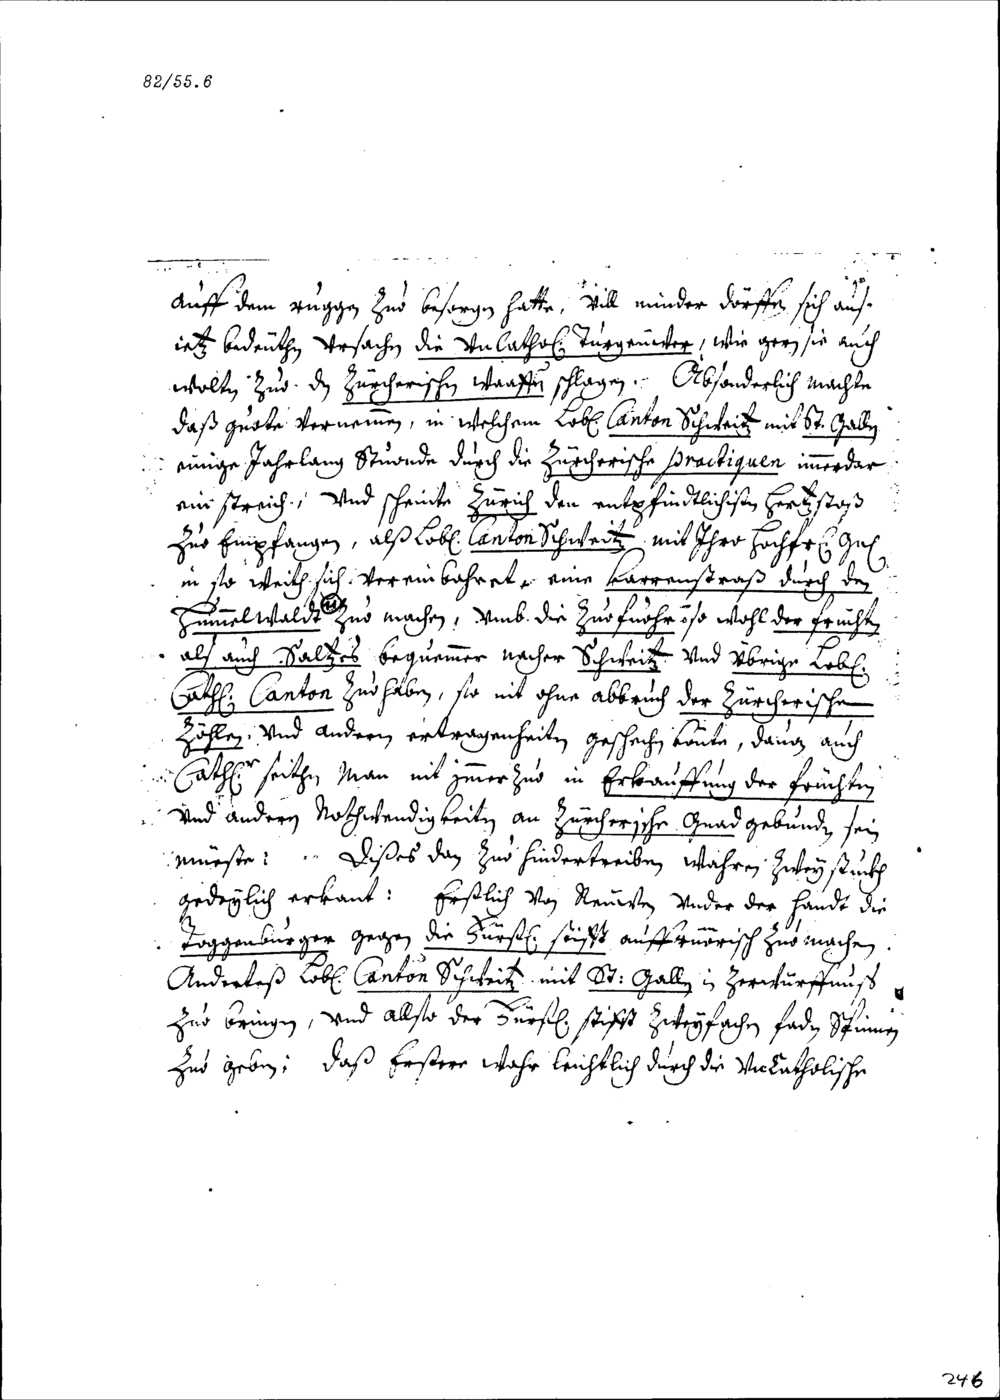 82/55.6
auff dem ruggen zuo besorgen hatte, vill minder dörffen sich auß
ietz bedeüthen Ursachen die UnCathol: Turgeüwer, wie gern sie auch
wolten zuo den Zürcherischen waaffen schlagen. Absonderlich machte
daß guote Vernemmen, in welchem Lobl: Canton Schweitz mit St. Gallen
einige Jahrlang Stuonde durch die Zürcherische practiquen immerdar
ein streich, Und scheinte Zürich den entpfindtlichisten Hertzstoß
zuo Empfangen, alß Lobl: Canton Schweitz mit Ihro Hochfr:
in so weith sich vereinbahret, eine karrenstraß durch den
Hummelwaldt zuo machen, umb die Zuofuohr so wohl der früchten
als auch Saltzes bequemmer nacher Schweitz Und übrige Lobl:
Cathl: Canton zuo haben, so nit ohne abbruch der Zürcherischen
Zöhlen, Und andern ertragenheiten geschechen könte, dan auch
Cathl:r seithen Man nit immerzuo in Erkauffung der früchten
Und andern Nothwendigkeiten an Zürcherische Gnad gebunden sein
müeste: Dißes dan zuo hindertreiben wahren zwey stuckh
gedeylich erkant: Erstlich Von Neüwen under der handt die
Toggenburger gegen die Fürstl: stifft auffruorisch zuo machen.
Anderteß Lobl: Canton Schweitz mit St: Gallen in Zerwürffnuß
zuo bringen, und allso der Fürstl: stifft zweyfachen faden Spinnen
zuo geben: daß Erstere wahr leichtlich durch die UnCatholische
246